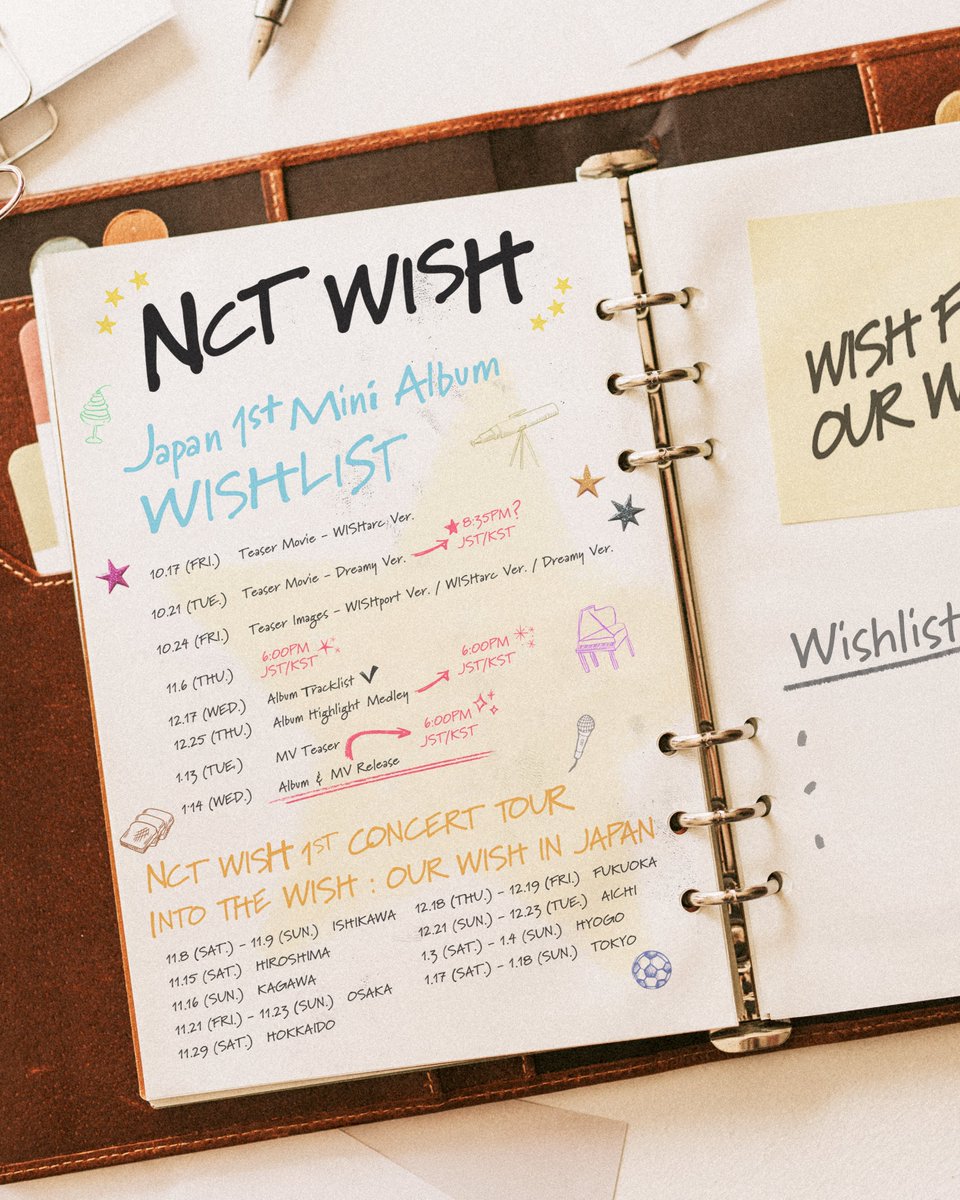 NCT WISH
Japan 1st Mini Album
WISHLIST
10.17 (FRI.) Teaser Movie – WISHarc Ver.
10.21 (TUE.) Teaser Movie – Dreamy Ver. 8:35PM?
JST/KST
10.24 (FRI.) Teaser Images – WISHport Ver. / WISHarc Ver. / Dreamy Ver.
11.6 (THU.) 6:00PM
JST/KST
12.17 (WED.) Album Tracklist
12.25 (THU.) Album Highlight Medley 6:00PM
JST/KST
1.13 (TUE.) MV Teaser 6:00PM
JST/KST
1.14 (WED.) Album & MV Release
NCT WISH 1ST CONCERT TOUR
INTO THE WISH : OUR WISH IN JAPAN
11.8 (SAT.) – 11.9 (SUN.) ISHIKAWA
11.15 (SAT.) HIROSHIMA
11.16 (SUN.) KAGAWA
11.21 (FRI.) – 11.23 (SUN.) OSAKA
11.29 (SAT.) HOKKAIDO
12.18 (THU.) – 12.19 (FRI.) FUKUOKA
12.21 (SUN.) – 12.23 (TUE.) AICHI
1.3 (SAT.) – 1.4 (SUN.) HYOGO
1.17 (SAT.) – 1.18 (SUN.) TOKYO
WISH F
OUR W
Wishlist